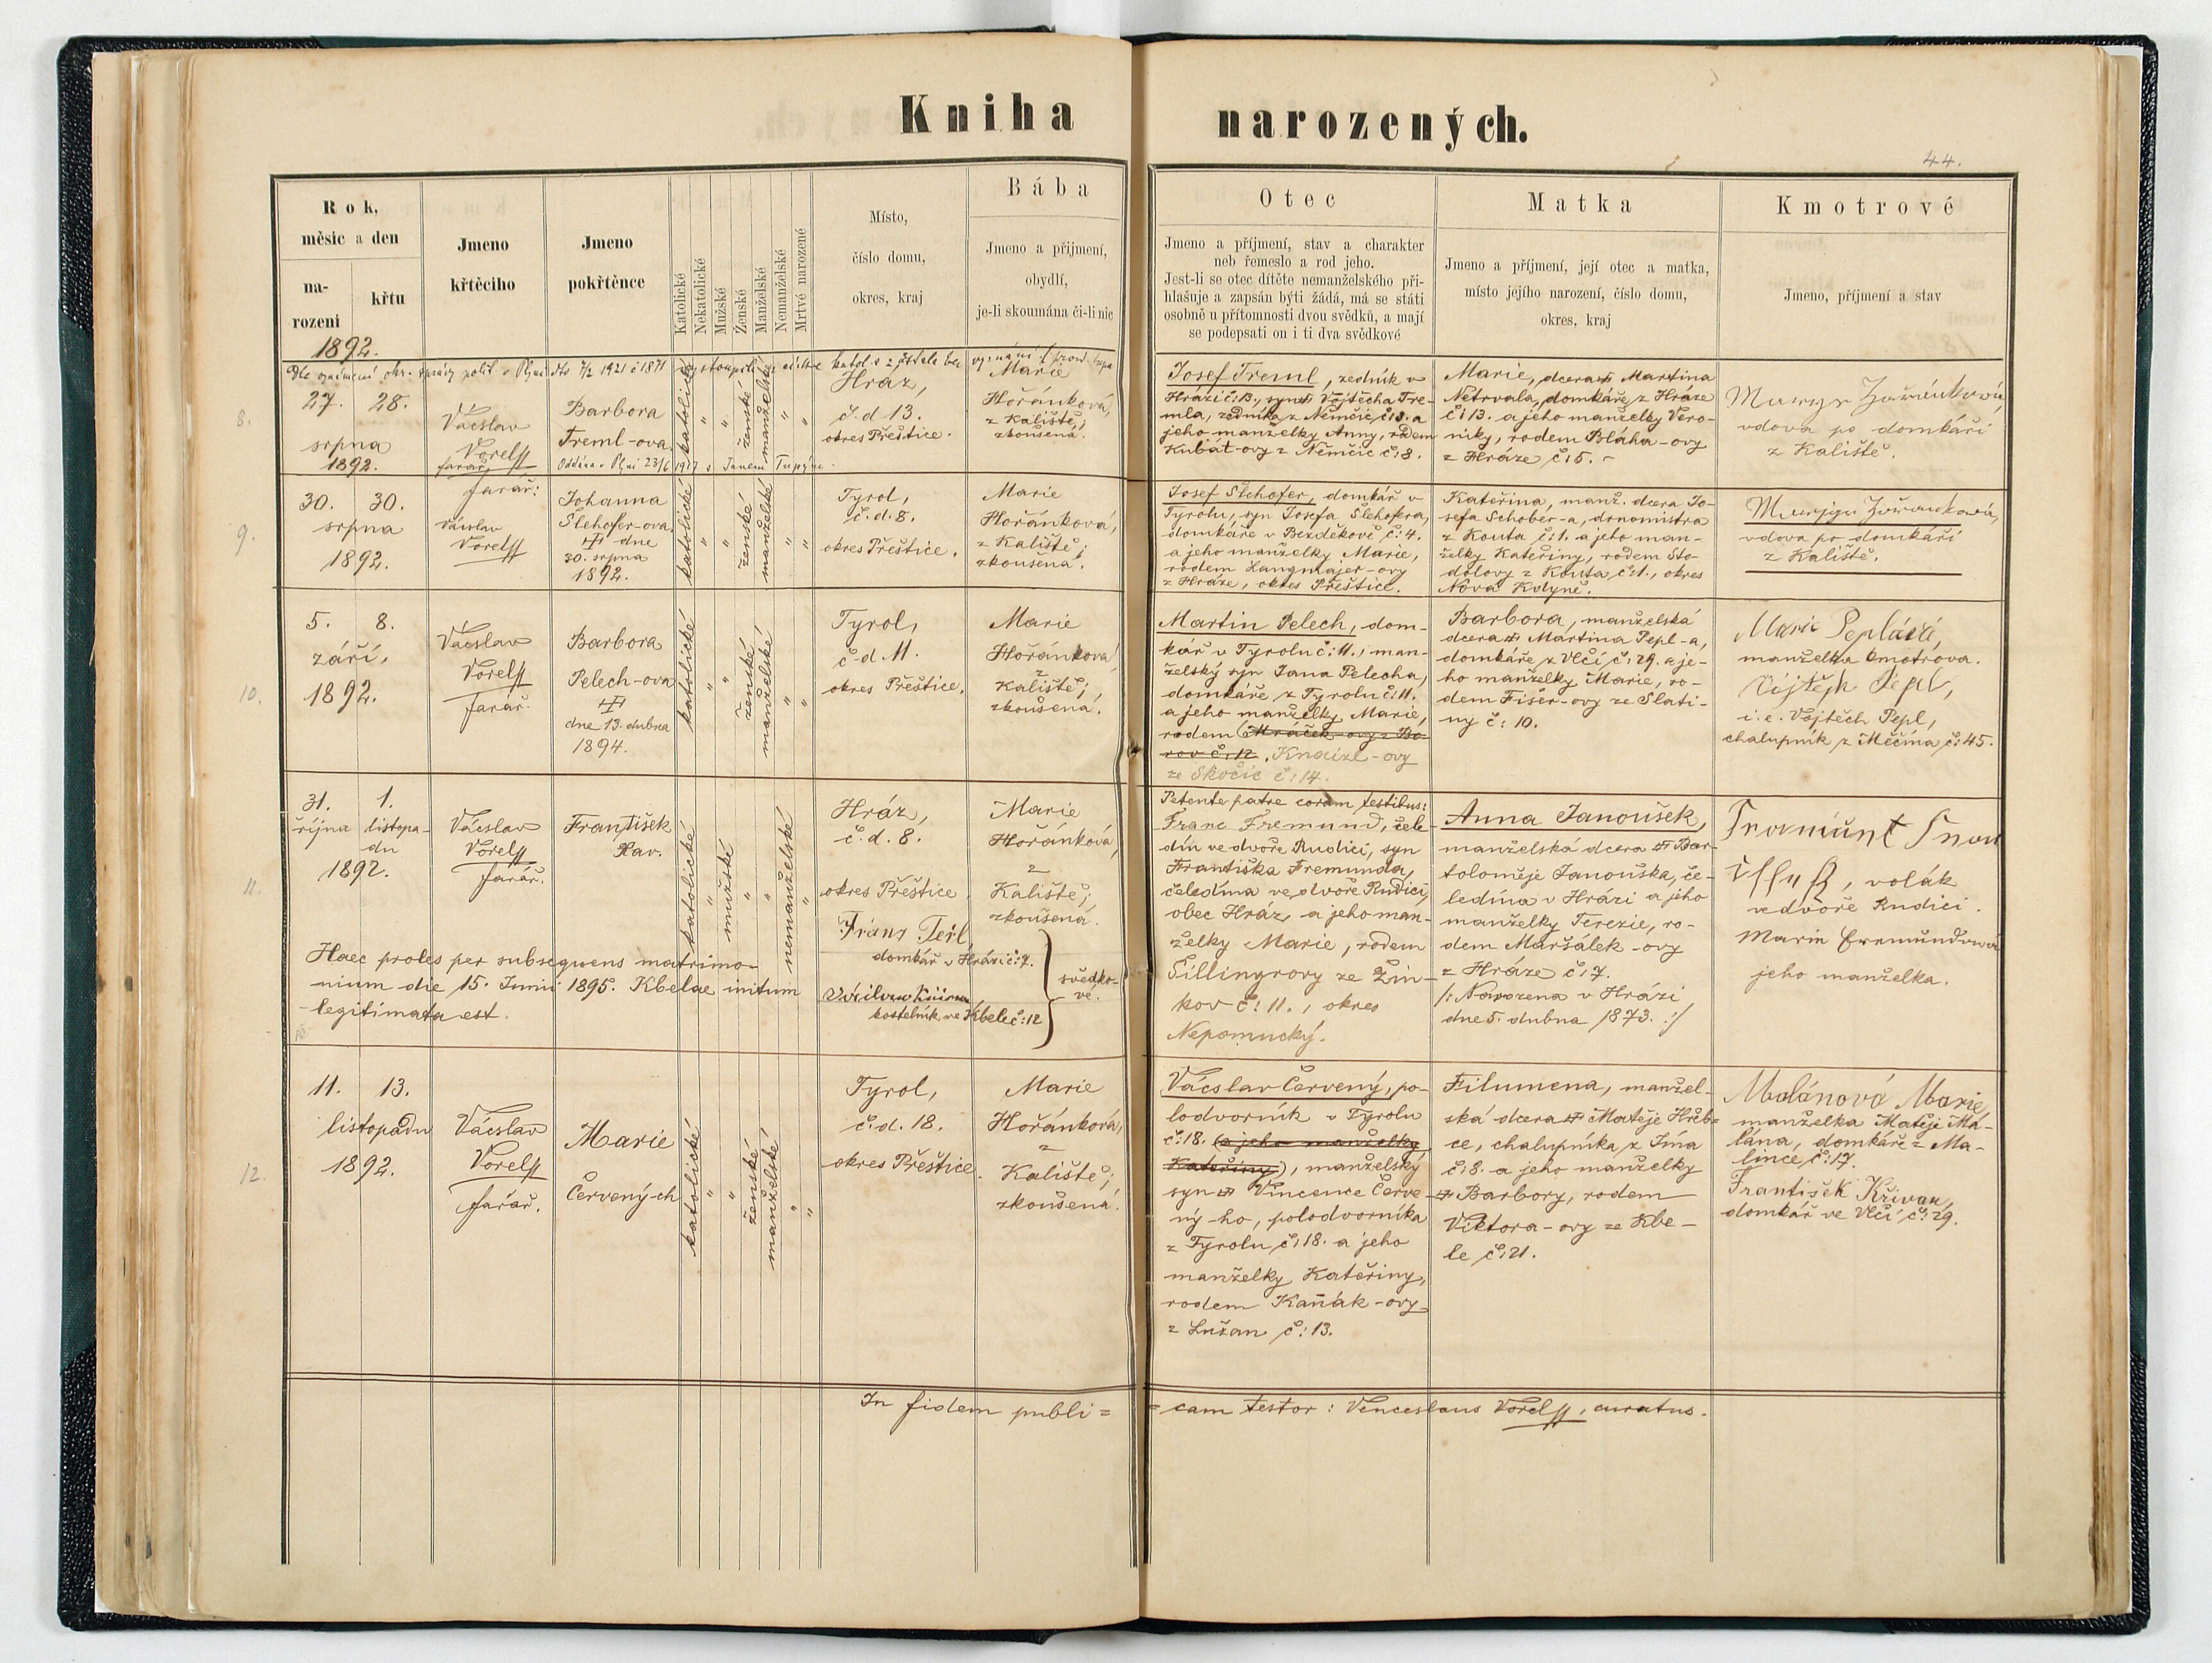 Kniha narozených.
44.
Rok, měsíc a den
narození
křtu
Jmeno křtěcího
Jmeno pokřtěnce
Katolické
Nekatolické
Mužské
Ženské
Manželské
Nemanželské
Mrtvé narozené
Místo,
číslo domu,
okres, kraj
Bába
Jmeno a přijmení,
obydlí,
je-li zkoumána či-li nic
Otec
Jmeno a příjmení, stav a charakter
neb řemeslo a rod jeho.
Jest-li se otec dítěte nemanželského při-
hlašuje a zapsán býti žádá, má se státi
osobně u přítomnosti dvou svědků, a mají
se podepsati on i ti dva svědkové
Matka
Jmeno a příjmení, její otec a matka,
místo jejího narození, číslo domu,
okres, kraj
Kmotrové
Jmeno, příjmení a stav
1892.
8.
27. 28.
srpna
1892.
Václav
Vorel
farář
Barbora
Treml-ova
Oddána v Plzni 23/6 1917 s Janem Tupým.
katolické
ženské
manželské
Hráz,
č.d 13.
okres Přeštice.
Marie
Hořánková,
z Kaliště;
zkoušená.
Josef Treml, zedník v
Hrázi č: 13., syn Vojtěcha Tre-
mla, zedníka z Němčic č: 8. a
jeho manželky Anny, rodem
Kubát-ovy z Němčic č: 8.
Marie, dcera Martina
Netrvala, domkáře z Hráze
č: 13. a jeho manželky Vero-
niky, rodem Bláha-ovy
z Hráze č: 5.
vdova po domkáři
z Kaliště.
9.
30. 30.
srpna
1892.
Václav
Vorel
farář:
Johanna
Šlehofer-ova
dne
30. srpna
1892.
katolické
ženské
manželské
Tyrol,
č.d. 8.
okres Přeštice.
Marie
Hořánková,
z Kaliště;
zkoušená.
Josef Šlehofer, domkář v
Tyrolu, syn Josefa Šlehofera,
domkáře v Bezděkově č: 4.
a jeho manželky Marie,
rodem Langmajer-ovy
z Hráze, okres Přeštice.
Kateřina, manž. dcera Jo-
sefa Schober-a, drnomistra
z Kouta č: 1. a jeho man-
želky Kateřiny, rodem Sto-
dolovy z Kouta č: 1., okres
Nová Kdyně.
vdova po domkáři
z Kaliště.
10.
5. 8.
září,
1892.
Václav
Vorel
farář.
Barbora
Pelech-ova
dne 13. dubna
1894.
katolické
ženské
manželské
Tyrol,
č.d. 11.
okres Přeštice.
Marie
Hořánkova
z
Kaliště;
zkoušená.
Martin Pelech, dom-
kář v Tyrolu č: 11., man-
želský syn Jana Pelecha,
domkáře z Tyrolu č: 11.
a jeho manželky Marie,
rodem (Hráček-ovy z Bo-
rov č: 12. Knaizl-ovy
ze Skočic č: 14.
Barbora, manželská
dcera Martina Pepl-a,
domkáře z Vlčí č: 29. a je-
ho manželky Marie, ro-
dem Fišer-ovy ze Slati-
ny č: 10.
manželka kmotrova.
Vojtěch Pepl,
i.e. Vojtěch Pepl,
chalupník z Měčína č: 45.
11.
31. 1.
října listopa-
du
1892.
Václav
Vorel
farář.
František
Xav.
katolické
mužské
nemanželské
Hráz,
č.d. 8.
okres Přeštice.
Marie
Hořánková,
z
Kaliště;
zkoušená.
domkář v Hrázi č: 7.
kostelník ve Kbele č: 12
svědko-
vé.
Haec proles per subsequens matrimo-
nium die 15. Junii 1895. Kbelae initum
legitimata est.
Petente patre coram testibus:
Franc Fremund, čele-
dín ve dvoře Rudici, syn
Františka Fremunda,
čeledína ve dvoře Rudici,
obec Hráz, a jeho man-
želky Marie, rodem
Šillingrovy ze Žin-
kov č: 11., okres
Nepomucký.
Anna Janoušek,
manželská dcera Bar-
toloměje Janouška, če-
ledína v Hrázi a jeho
manželky Terezie, ro-
dem Maršálek-ovy
z Hráze č: 7.
/: Narozena v Hrázi
dne 5. dubna 1873. :/
volák
ve dvoře Rudici.
jeho manželka.
12.
11. 13.
listopadu
1892.
Václav
Vorel
farář.
Marie
Červený-ch
katolické
ženské
manželské
Tyrol,
č.d. 18.
okres Přeštice.
Marie
Hořánková,
z
Kaliště;
zkoušená.
Václav Červený, po-
lodvorník v Tyrolu
č: 18. (a jeho manželky
Kateřiny), manželský
syn Vincence Červe-
ný-ho, polodvorníka
z Tyrolu č: 18. a jeho
manželky Kateřiny,
rodem Kaňák-ovy
z Lužan č: 13.
Filumena, manžel-
ská dcera Matěje Hřeb-
ce, chalupníka z Jína
č: 8. a jeho manželky
Barbory, rodem
Viktora-ovy ze Kbe-
le č: 21.
Malánová Marie,
manželka Matěje Ma-
lána, domkáře z Ma-
lince č: 17.
František Křivan,
domkář ve Vlčí č: 29.
In fidem publi=
=cam testor: Venceslaus Vorel, curatus.